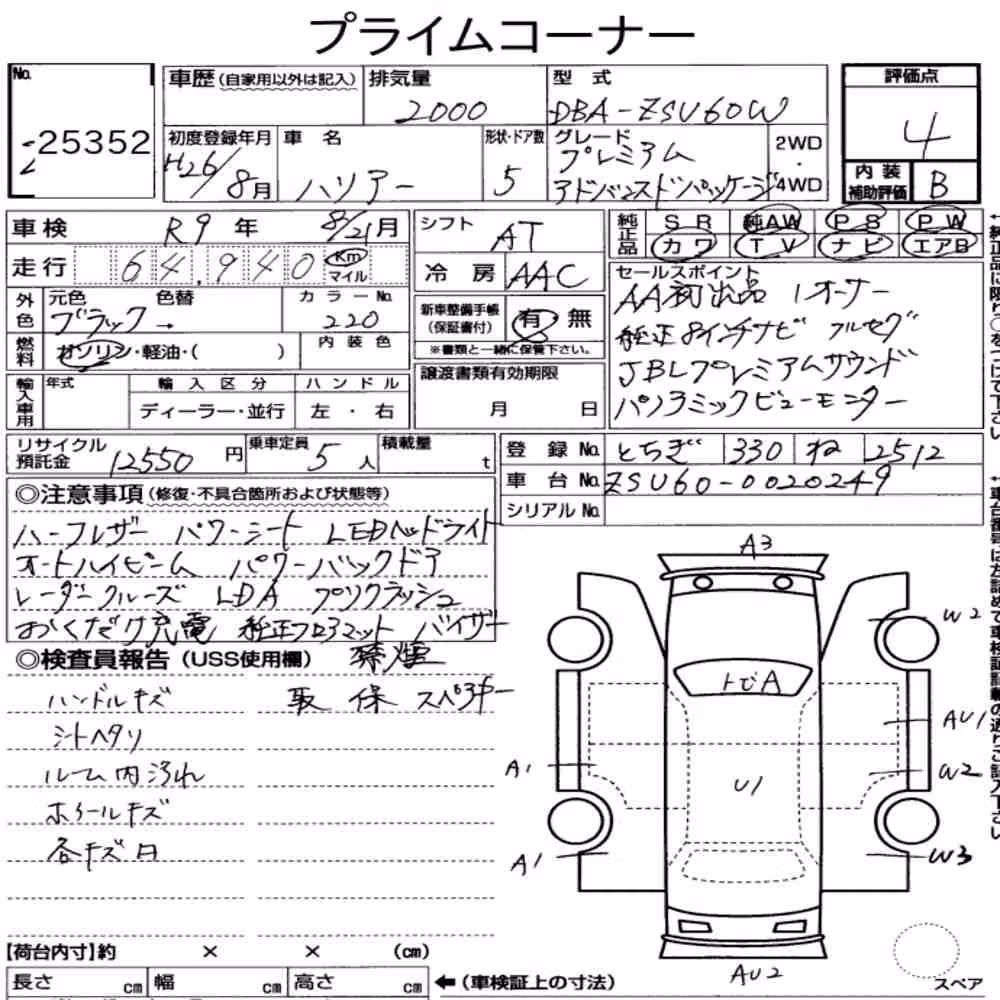 プライムコーナー
No.
25352
車歴(自家用以外は記入)
排気量
2000
型式
DBA-ZSU60W
評価点
4
初度登録年月
H26/8月
車名
ハリアー
形状・ドア数
5
グレード
プレミアム
アドバンスドパッケージ
2WD
・
4WD
内装
補助評価
B
車検
R9年 8/21月
シフト
AT
純正品
SR 純AW PS PW
カワ TV ナビ エアB
走行
64,940
Km
マイル
冷房
AAC
セールスポイント
AA初出品 1オーナー
純正8インチナビ フルセグ
JBLプレミアムサウンド
パノラミックビューモニター
外色
元色 色替
ブラック→
カラーNo.
220
新車整備手帳
(保証書付)
有 無
※書類と一緒に保管下さい。
燃料
ガソリン・軽油・( )
内装色
輸入車用
年式
輸入区分
ディーラー・並行
ハンドル
左・右
譲渡書類有効期限
月 日
リサイクル
預託金
12550円
乗車定員
5人
積載量
t
登録No.
とちぎ 330 ね 2512
車台No.
ZSU60-0020249
シリアルNo.
◎注意事項(修復・不具合箇所および状態等)
ハーフレザー パワーシート LEDヘッドライト
オートハイビーム パワーバックドア
レーダークルーズ LDA プリクラッシュ
おくだけ充電 純正フロアマット バイザー
禁煙
◎検査員報告(USS使用欄)
取 保 スペアキー
ハンドルキズ
シートヘタリ
ルーム内汚れ
ホイールキズ
各キズ凹
A3
W2
トビA
AU1
A1
U1
W2
A1
W3
AU2
スペア
【荷台内寸】約 × × (cm)
長さ cm 幅 cm 高さ cm
←(車検証上の寸法)
←純正品に限り○をつけて下さい
←車台番号は左詰めで車検証記載の通りご記入下さい